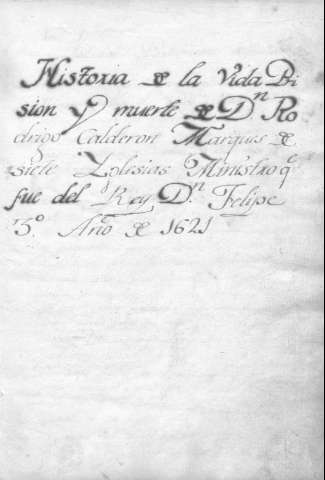 Historia de la Vida Pri
sion y muerte de Dn Ro
drigo Calderon Marquis de
siete Yglesias Ministro q.e
fue del Rey Dn. Felipe
3º. Año de 1621